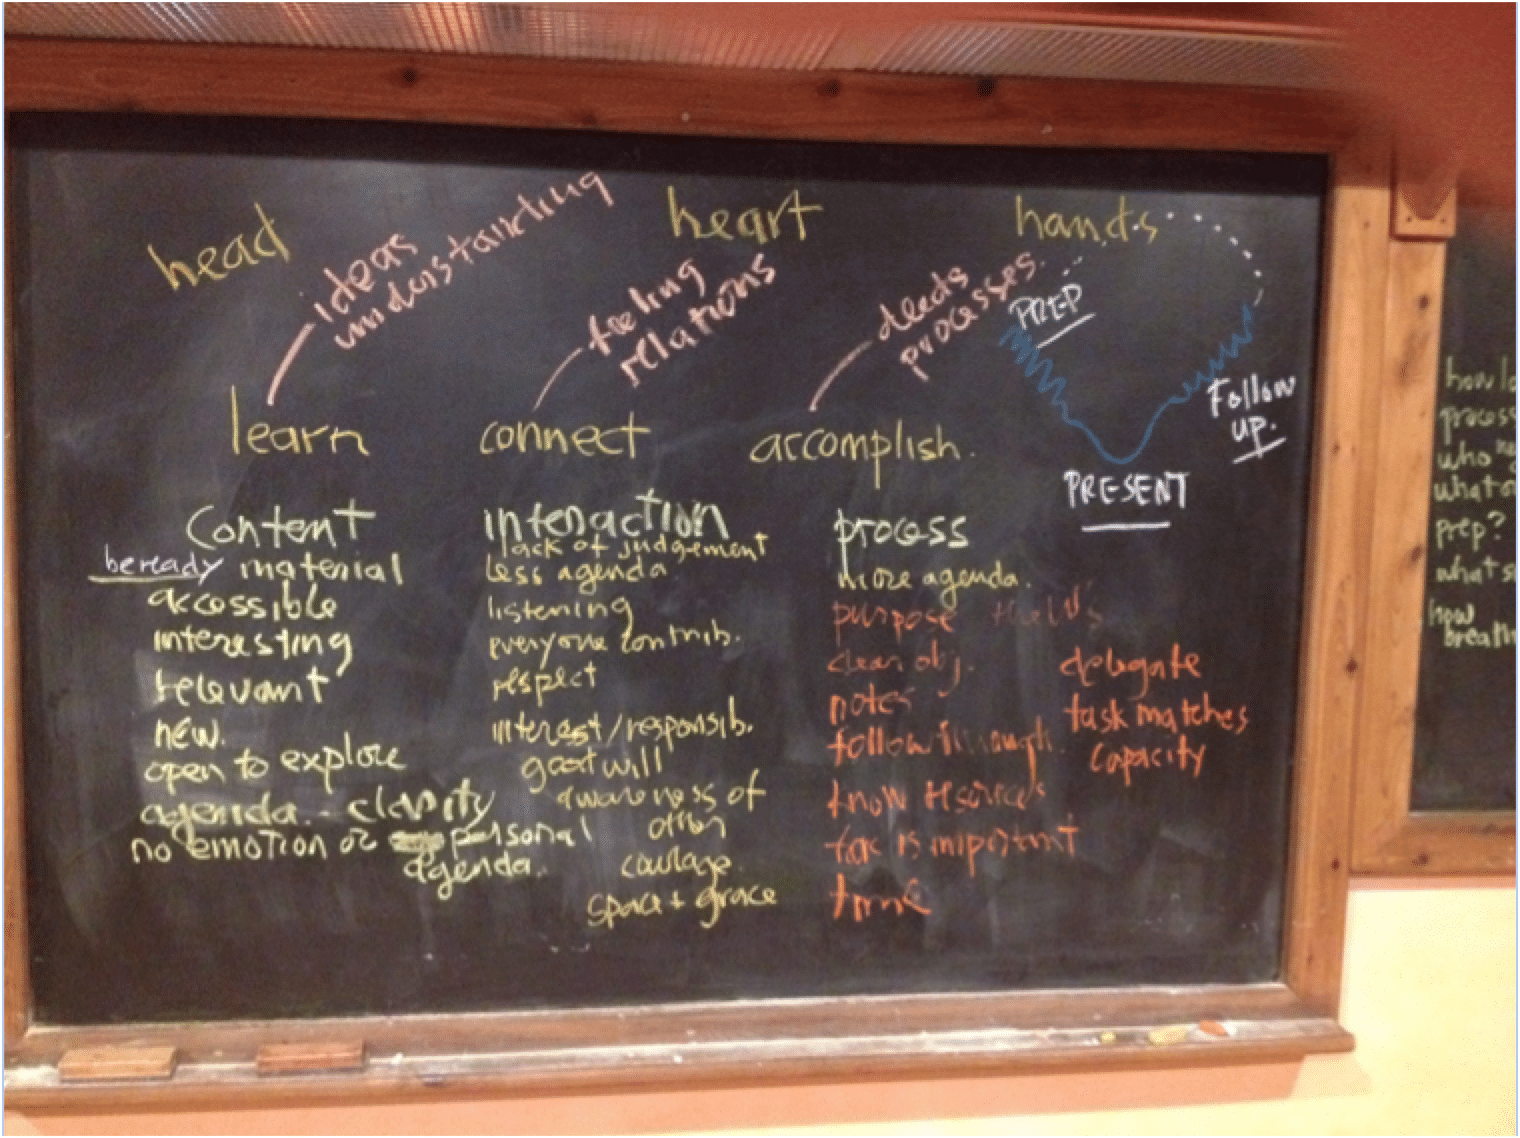 head
heart
hands
ideas
understanding
feeling
relations
deeds
processes.
PREP
Follow
up.
PRESENT
learn
connect
accomplish.
Content
be ready material
accessible
interesting
relevant
new.
open to explore
agenda. - clarity
no emotion or personal
agenda.
interaction
lack of judgement
less agenda
listening
everyone contrib.
respect
interest/responsib.
good will
awareness of
other
courage.
space + grace
process
more agenda.
purpose
clear obj.
notes
follow through
know resources
is important
time
delegate
task matches
capacity
process
who
what
prep?
what s
how
breath